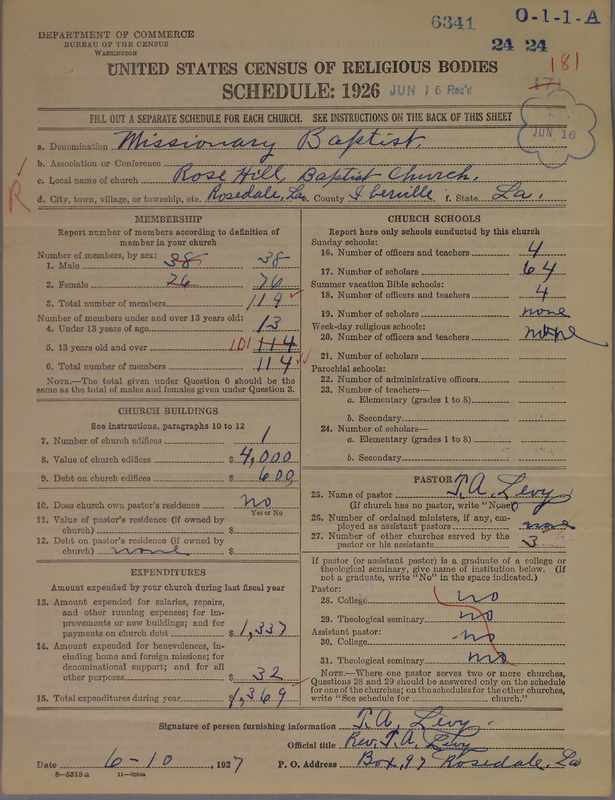 6341
O-1-1-A
DEPARTMENT OF COMMERCE
BUREAU OF THE CENSUS
WASHINGTON
24 24
UNITED STATES CENSUS OF RELIGIOUS BODIES
181
SCHEDULE: 1926 JUN 16 Rec'd
171
FILL OUT A SEPARATE SCHEDULE FOR EACH CHURCH. SEE INSTRUCTIONS ON THE BACK OF THIS SHEET
JUN 16
a. Denomination Missionary Baptist
b. Association or Conference
c. Local name of church Rose Hill Baptist Church.
R
d. City, town, village, or township, etc. Rosedale, La e. County Iberville f. State La.
MEMBERSHIP
Report number of members according to definition of
member in your church
Number of members, by sex:
1. Male 38 38
2. Female 76 76
3. Total number of members 114
Number of members under and over 13 years old:
4. Under 13 years of age 13
5. 13 years old and over 101 114
6. Total number of members 114
NOTE.—The total given under Question 6 should be
same as the total of males and females given under Question 3.
CHURCH BUILDINGS
See instructions, paragraphs 10 to 12
7. Number of church edifices 1
8. Value of church edifices $ 4,000
9. Debt on church edifices $ 600
10. Does church own pastor's residence no
Yes or No
11. Value of pastor's residence (if owned by
church) $
12. Debt on pastor's residence (if owned by
church) none $
EXPENDITURES
Amount expended by your church during last fiscal year
13. Amount expended for salaries, repairs,
and other running expenses; for im-
provements or new buildings; and for
payments on church debt $ 1,337
14. Amount expended for benevolences, in-
cluding home and foreign missions; for
denominational support; and for all
other purposes $ 32
15. Total expenditures during year $ 1,369
CHURCH SCHOOLS
Report here only schools conducted by this church
Sunday schools:
16. Number of officers and teachers 4
17. Number of scholars 64
Summer vacation Bible schools:
18. Number of officers and teachers 4
19. Number of scholars none
Week-day religious schools:
20. Number of officers and teachers none
21. Number of scholars
Parochial schools:
22. Number of administrative officers
23. Number of teachers—
a. Elementary (grades 1 to 8)
b. Secondary
24. Number of scholars—
a. Elementary (grades 1 to 8)
b. Secondary
PASTOR
25. Name of pastor T. A. Levy
(If church has no pastor, write "None")
26. Number of ordained ministers, if any, em-
ployed as assistant pastors none
27. Number of other churches served by the
pastor or his assistants 3
If pastor (or assistant pastor) is a graduate of a college or
theological seminary, give name of institution below. (If
not a graduate, write "No" in the space indicated.)
Pastor:
28. College no
29. Theological seminary no
Assistant pastor:
30. College no
31. Theological seminary no
NOTE.—Where one pastor serves two or more churches,
Questions 28 and 29 should be answered only on the schedule
for one of the churches; on the schedules for the other churches,
write "See schedule for church."
Signature of person furnishing information T. A. Levy
Official title Rev. T. A. Levy
Date 6-10, 1927 P. O. Address Box, 97 Rosedale, La
8-5318a 11-9184a